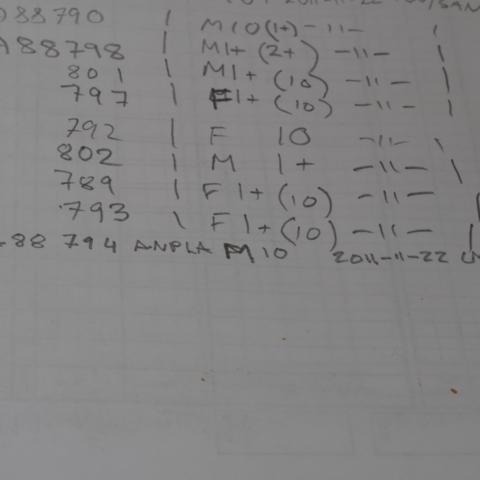 88790 | M 10 (1+) -11- |
A88798 | M1+ (2+) -11- |
801 | M1+ (10) -11- |
797 | F1+ (10) -11- |
792 | F 10 -11- \
802 | M 1+ -11- \
789 | F 1+ (10) -11- |
793 \ F 1+ (10) -11- |
88 794 ANPLA M 10 2011-11-22